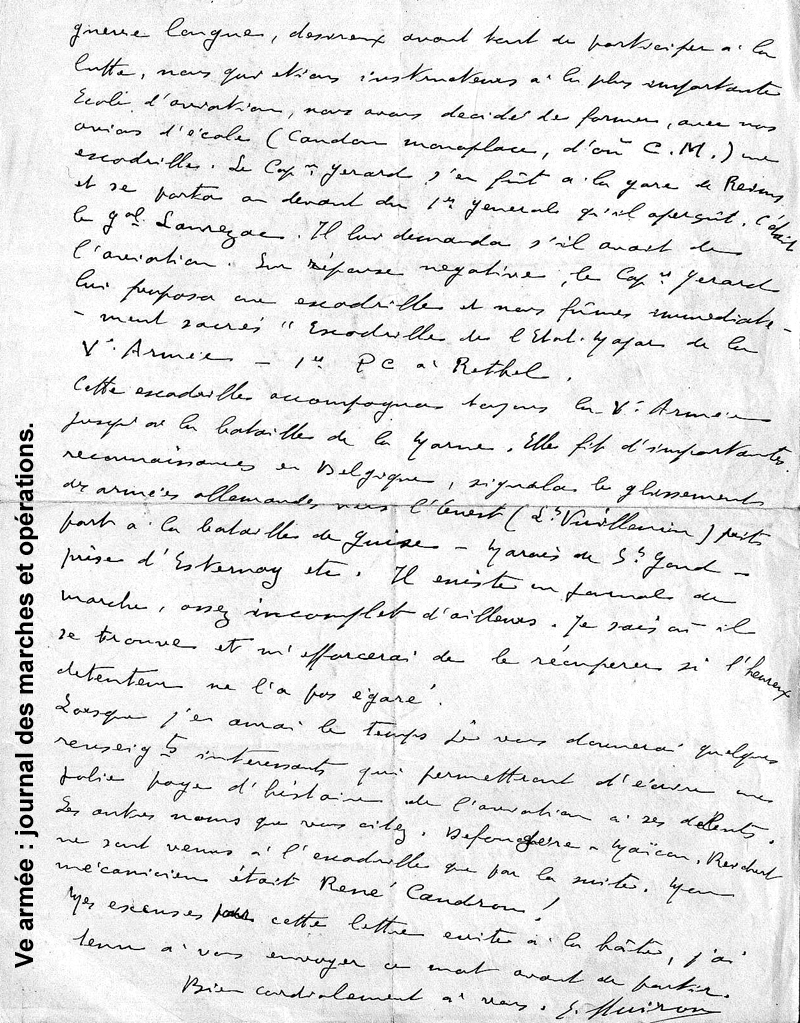 guerre longue, desireux avant tout de participer à la
lutte, nous qui etions instructeurs à la plus importante
Ecole d'aviation, nous avons decidé de former, avec nos
avions d'école (Caudron monoplace, d'où C.M.) une
escadrille. Le Cap ne Gerard s'en fût à la gare de Reims
et se porta au devant du 1er General qu'il aperçut. C'était
le gal. Lanrezac. Il lui demanda s'il avait de
l'aviation. Sur réponse negative, le Cap ne Gerard
lui proposa une escadrille et nous fûmes immediate-
-ment sacrés "Escadrille de l'Etat-Major de la
Ve Armée — 1er PC à Rethel.
Cette escadrille accompagna toujours la Ve Armée
jusqu'à la bataille de la Marne. Elle fit d'importantes
reconnaissances en Belgique, signala le glissement
des armées allemandes vers l'Ouest (Lt Vuillemin) prit
part à la bataille de Guise — Marais de St Gond —
prise d'Esternay etc. Il existe un journal de
marche, assez incomplet d'ailleurs. Je sais où il
se trouve et m'efforcerai de le récuperer si l'heureux
detenteur ne l'a pas égaré.
Lorsque j'en aurai le temps je vous donnerai quelques
renseigts interessants qui permettront d'écrire une
jolie page d'histoire de l'aviation à ses debuts.
Les autres noms que vous citez, Maïcon, Reichert
ne sont venus à l'escadrille que par la suite. Mon
mécanicien était René Caudron!
Mes excuses pour cette lettre ecrite à la hâte, j'ai
tenu à vous envoyer ce mot avant de partir.
Bien cordialement à vous.
Ve armée : journal des marches et opérations.